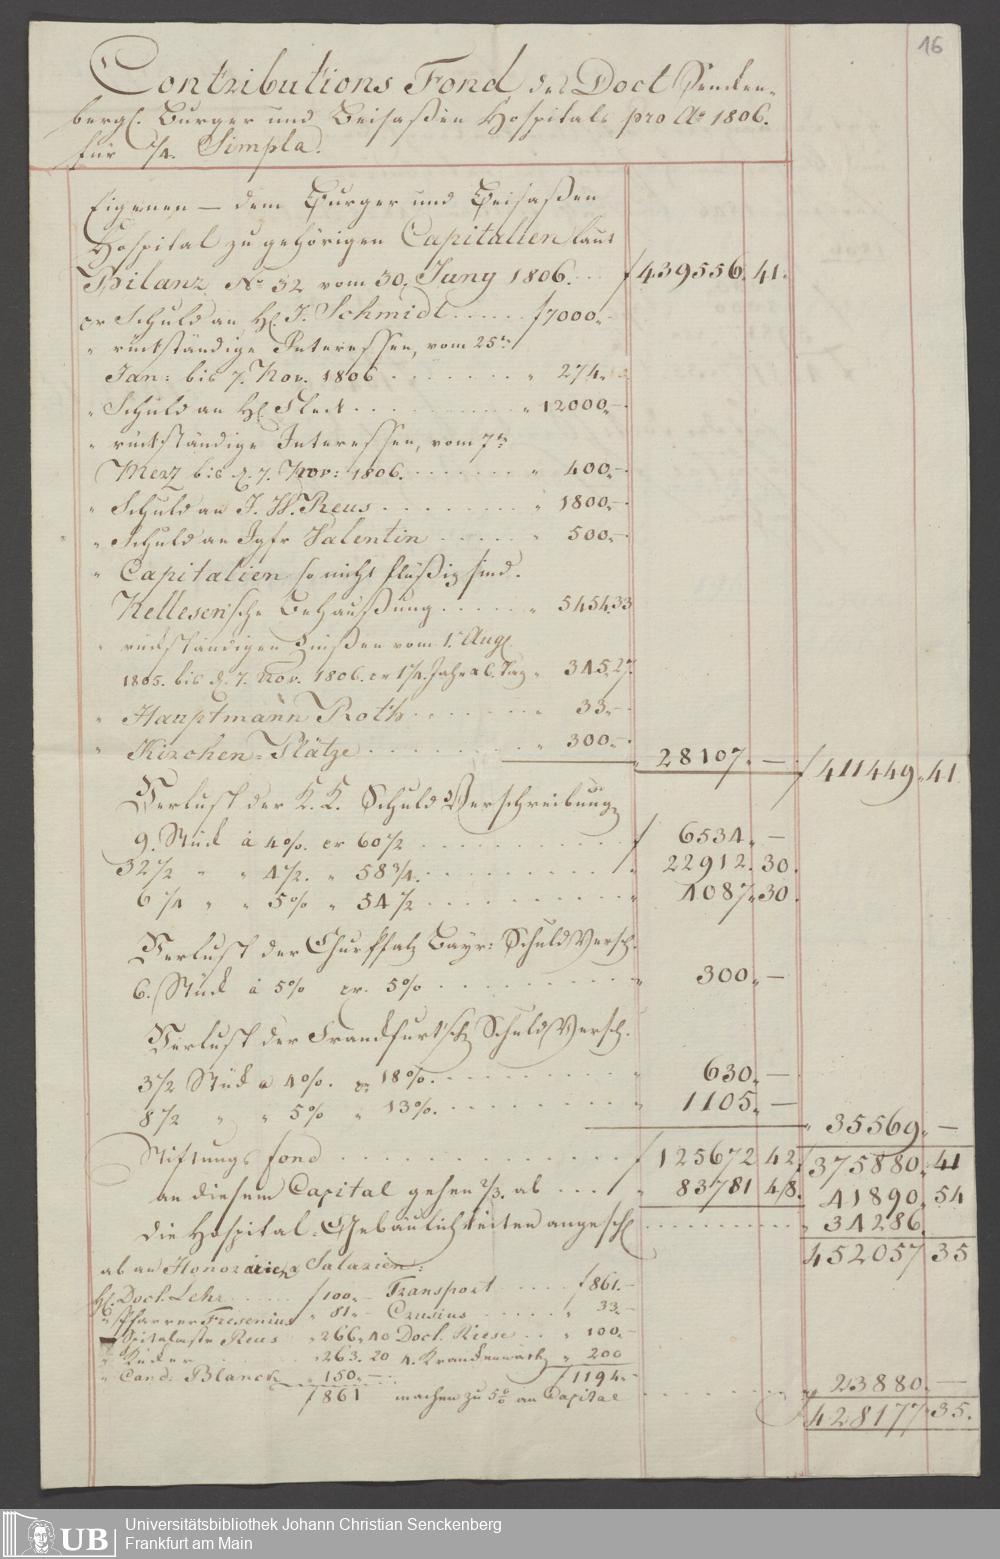 16
Contributions Fond des Doct Sencken-
bergl. Burger und Beisaßen Hospitals pro Ao 1806.
für 2/4. Simpla.
Eigenen — dem Burger und Beisaßen
Hospital zu gehörigen Capitalien laut
Bilanz No 32 vom 30. Juny 1806. ... f 439556. 41.
Schuld an H. J. Schmidt ..... f 7000.-
" rückständige Interessen, vom 25n
Jan: bis 7. Nov. 1806 ....... " 274.
" Schuld an H. Fleck ......... " 12000.-
" rückständige Interessen, vom 7n
Merz bis d. 7. Nov: 1806. ...... " 400.-
" Schuld an J. W. Reus ........ " 1800.-
" Schuld an Jgfr Valentin ..... " 500.-
" Capitalien so nicht flüßig sind.
Kellerische Behaußung ..... " 5454.33
" rückständigen Zinßen vom 1. Aug
1805. bis d. 7. Nov. 1806. er 1 1/4. Jahr a 6. Tag " 345.27.
" Hauptmann Roth ....... " 33.-
" Kirchen-Plätze ......... " 300.- " 28107. — f 411449. 41.
Verlust der K. K. Schuld Verschreibung
9. Stück à 4%. er 60 1/2 .......... f 6534. —
32 1/2 " " 4 1/2. " 58 3/4. .......... " 22912. 30.
6 1/4 " " 5% " 54 1/2 .......... " 4087. 30.
Verlust der Churpfalz Bayr: Schuld Versch.
6. Stück à 5% er. 5% ......... " 300. —
Verlust der Frankfurtsch Schuld Versch.
3 1/2 Stück a 4%. er 18%. ......... " 630. —
8 1/2 " " 5% " 13%. ......... " 1105. — " 35569. —
Stiftungs fond ............ f 125672 42. f 375880. 41
an diesem Capital gehen 2/3. ab ... " 83781 48. " 41890. 54
die Hospital-Gebäulichkeiten angeschl ......... " 34286.
f 452057 35
ab an Honorarien & Salarien:
H. Doct. Lehr ..... f 100.- Transport ..... f 861.-
" Pfarrer Fresenius " 81.- Crusius ..... " 33.-
" Reus " 266.40 Doct. Riese .. " 100.-
" " 263.20 4. Krankenwärt " 200
" Cand. Blanck " 150.- f 1194.-
f 861 machen zu 5% an Capital ........ " 23880. —
f 428177. 35.
UB Universitätsbibliothek Johann Christian Senckenberg
Frankfurt am Main